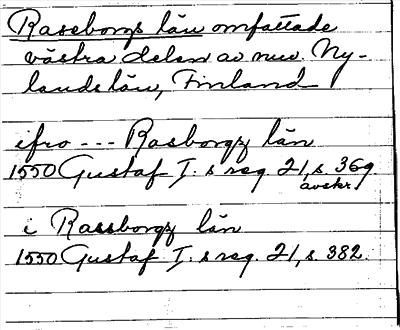 Raseborgs län omfattade
västra delen av nuv. Ny-
lands län, Finland
ifro --- Rasborgz län
1550 Gustaf I. s reg. 21, s. 369
avskr.
i Rassborgz län
1550 Gustaf I. s reg. 21, s. 382.